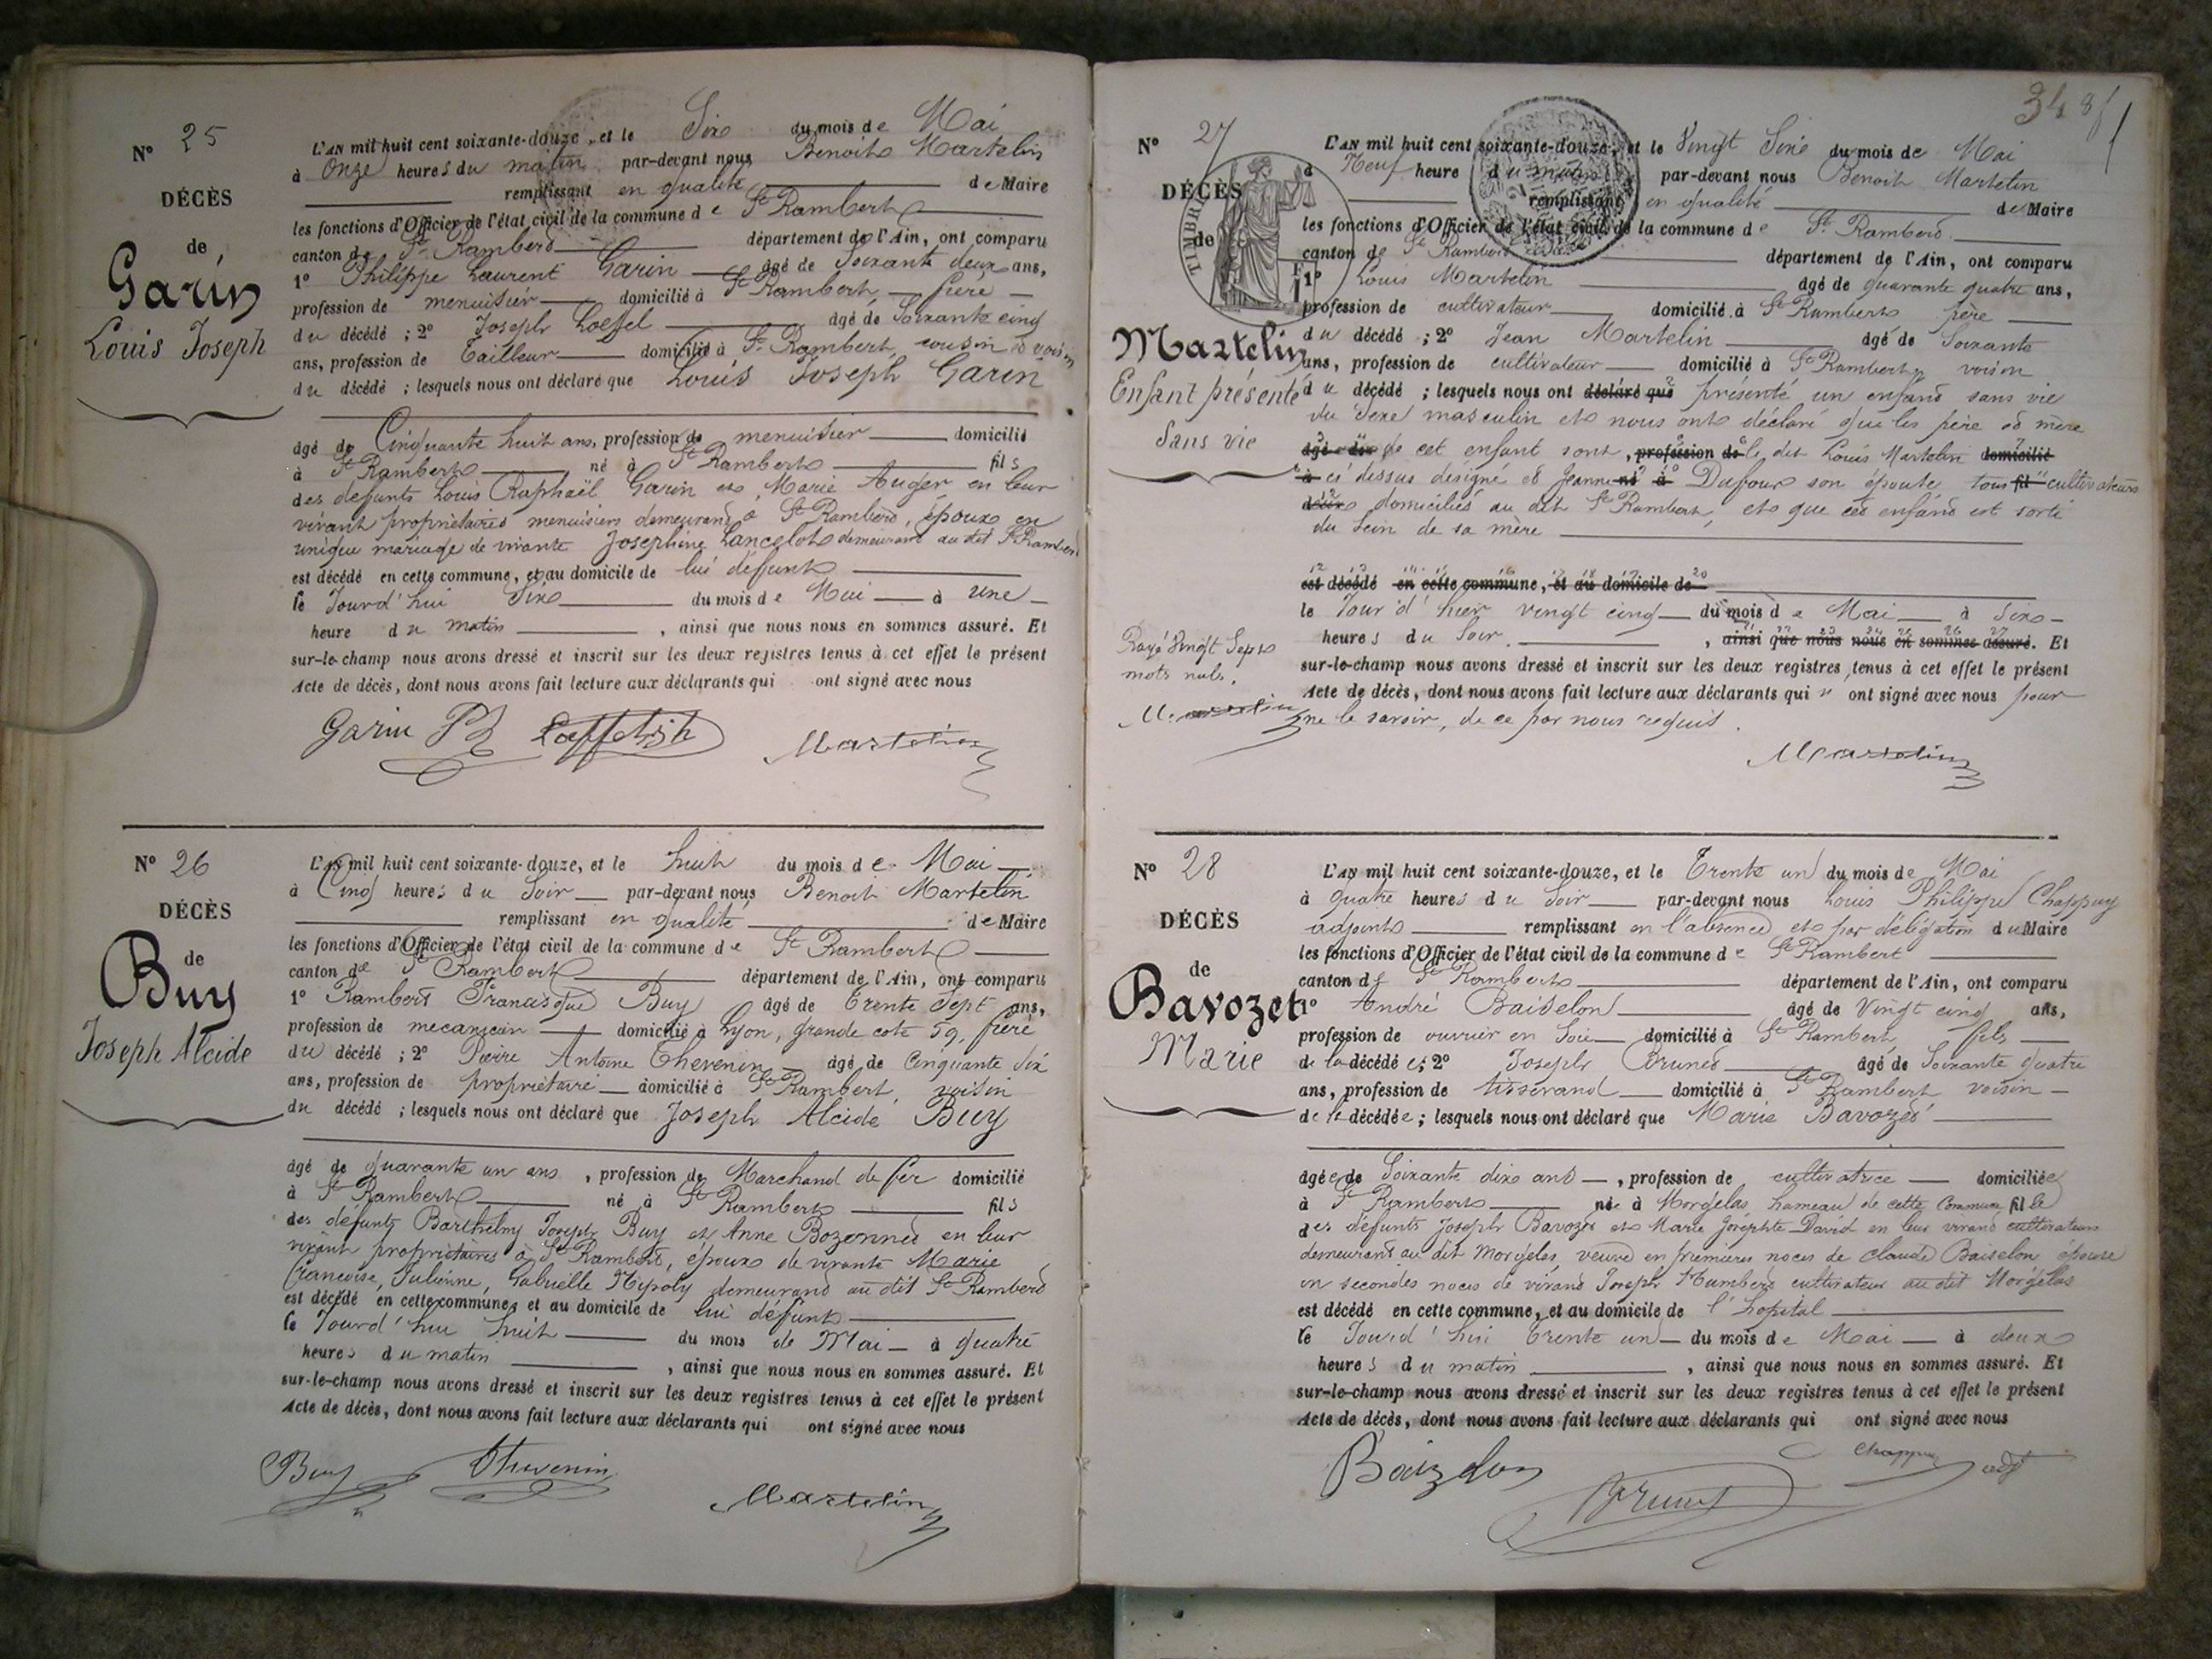 N° 25
DÉCÈS
de
Garin
Louis Joseph
L'AN mil huit cent soixante-douze, et le Six du mois de Mai
à Onze heures du matin par-devant nous Benoit Martelin
remplissant en qualité de Maire
les fonctions d'Officier de l'état civil de la commune de St Rambert
canton de St Rambert département de l'Ain, ont comparu
1° Philippe Laurent Garin âgé de Soixante deux ans,
profession de menuisier domicilié à St Rambert frère
du décédé ; 2° Joseph Loeffel âgé de Soixante cinq
ans, profession de Tailleur domicilié à St Rambert, cousin et voisin
du décédé ; lesquels nous ont déclaré que Louis Joseph Garin
âgé de Cinquante huit ans, profession de menuisier domicilié
à St Rambert né à St Rambert fils
des défunts Louis Raphaël Garin et Marie Auger en leur
vivant propriétaires menuisiers demeurant à St Rambert, époux en
unique mariage de vivante Josephine Lancelot demeurant au dit St Rambert
est décédé en cette commune, et au domicile de lui défunt
le Jourd'hui Six du mois de Mai à une
heure du matin, ainsi que nous nous en sommes assuré. Et
sur-le-champ nous avons dressé et inscrit sur les deux registres tenus à cet effet le présent
Acte de décès, dont nous avons fait lecture aux déclarants qui ont signé avec nous
Garin Ph Martelin
N° 26
DÉCÈS
de
Buy
Joseph Alcide
L'AN mil huit cent soixante-douze, et le huit du mois de Mai
à Cinq heures du Soir par-devant nous Benoit Martelin
remplissant en qualité de Maire
les fonctions d'Officier de l'état civil de la commune de St Rambert
canton de St Rambert département de l'Ain, ont comparu
1° Rambert Francisque Buy âgé de Trente Sept ans,
profession de mecanicien domicilié à Lyon, grande cote 59, frère
du décédé ; 2° Pierre Antoine Thevenin âgé de Cinquante six
ans, profession de propriétaire domicilié à St Rambert, voisin
du décédé ; lesquels nous ont déclaré que Joseph Alcide Buy
âgé de quarante un ans, profession de Marchand de fer domicilié
à St Rambert né à St Rambert fils
des défunts Barthelmy Joseph Buy et Anne Bozonnet en leur
vivant propriétaires à St Rambert, époux de vivante Marie
Francoise, Julienne, Gabrielle Hipoly demeurant au dit St Rambert
est décédé en cette commune, et au domicile de lui défunt
le Jourd'hui huit du mois de Mai à quatre
heures du matin, ainsi que nous nous en sommes assuré. Et
sur-le-champ nous avons dressé et inscrit sur les deux registres tenus à cet effet le présent
Acte de décès, dont nous avons fait lecture aux déclarants qui ont signé avec nous
Buy Thevenin
Martelin
34
N° 27
DÉCÈS
de
TIMBRE
Martelin
Enfant présenté
Sans vie
L'AN mil huit cent soixante-douze, et le Vingt Six du mois de Mai
à Neuf heure du matin par-devant nous Benoit Martelin
remplissant en qualité de Maire
les fonctions d'Officier de l'état civil de la commune de St Rambert
canton de St Rambert département de l'Ain, ont comparu
1° Louis Martelin âgé de quarante quatre ans,
profession de cultivateur domicilié à St Rambert père
du décédé ; 2° Jean Martelin âgé de Soixante
ans, profession de cultivateur domicilié à St Rambert voisin
du décédé ; lesquels nous ont déclaré que présenté un enfant sans vie
du sexe masculin et nous ont déclaré que les père et mère
âgé de cet enfant sont, profession de le dit Louis Martelin domicilié
à ci dessus désigné et Jeanne né à Dufour son épouse tous fil cultivateurs
domiciliés au dit St Rambert, et que cet enfant est sorti
du sein de sa mère
est décédé en cette commune, et au domicile de
le Jour d'hier vingt cinq du mois de Mai à Six
heures du Soir, ainsi que nous nous en sommes assuré. Et
sur-le-champ nous avons dressé et inscrit sur les deux registres tenus à cet effet le présent
Acte de décès, dont nous avons fait lecture aux déclarants qui n'ont signé avec nous pour
ne le savoir, de ce par nous requis.
Rayé Vingt Sept
mots nuls.
Martelin
Martelin
N° 28
DÉCÈS
de
Bavozet
Marie
L'AN mil huit cent soixante-douze, et le Trente un du mois de Mai
à quatre heures du Soir par-devant nous Louis Philippe Chappuy
adjoint remplissant en l'absence et par délégation du Maire
les fonctions d'Officier de l'état civil de la commune de St Rambert
canton de St Rambert département de l'Ain, ont comparu
1° André Baiselon âgé de Vingt cinq ans,
profession de ouvrier en Soie domicilié à St Rambert fils
de la décédée; 2° Joseph Brunet âgé de Soixante quatre
ans, profession de tisserand domicilié à St Rambert voisin
de la décédée; lesquels nous ont déclaré que Marie Bavozet
âgée de Soixante dix ans, profession de cultivatrice domiciliée
à St Rambert née à Morgelas, hameau de cette Commune, fille
des défunts Joseph Bavozet et Marie Josephte David en leur vivant cultivateurs
demeurant au dit Morgelas, veuve en premieres noces de Claude Baiselon, épouse
en secondes noces de vivant Joseph Humbert cultivateur au dit Morgelas
est décédé en cette commune, et au domicile de l'hopital
le Jourd'hui Trente un du mois de Mai à deux
heures du matin, ainsi que nous nous en sommes assuré. Et
sur-le-champ nous avons dressé et inscrit sur les deux registres tenus à cet effet le présent
Acte de décès, dont nous avons fait lecture aux déclarants qui ont signé avec nous
Baizelon Brunet Chappuy adjt